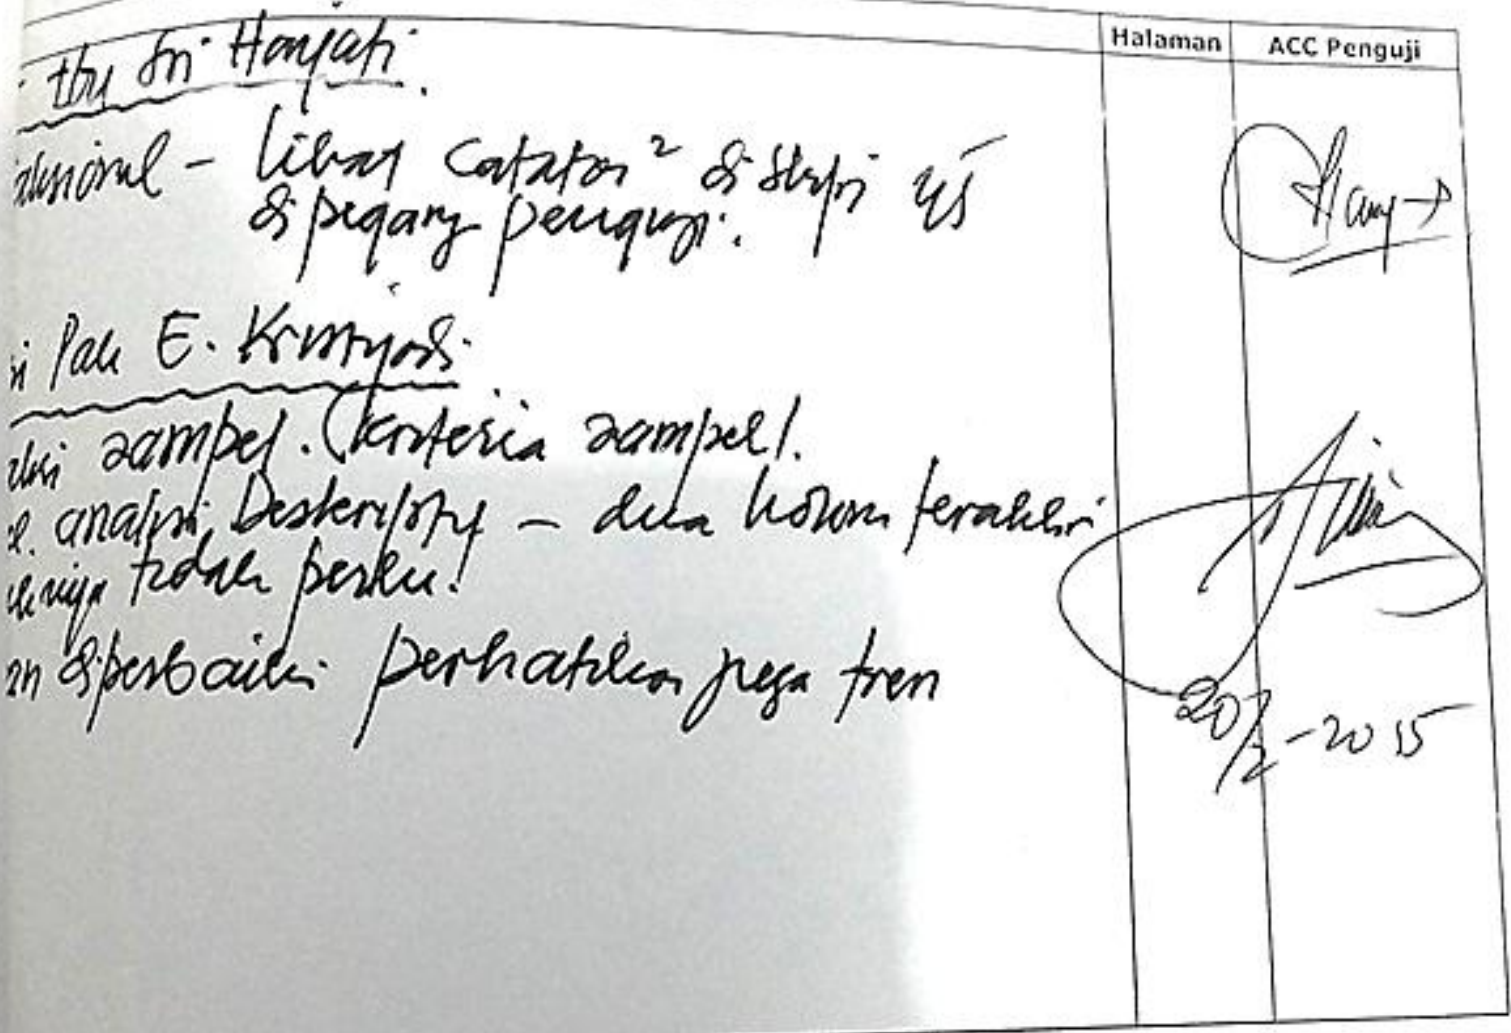 Halaman ACC Penguji
Ibu Sri Haryati.
- lihat catatan² di skripsi yg
dipegang penguji.
Pak E. Kristijadi
sampel. (kriteria sampel).
analisis Deskriptif - dua kolom terakhir
tidak perlu!
diperbaiki perhatikan juga tren
20/2-2015